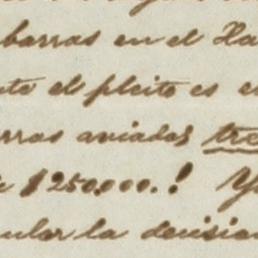 barras en el Ha
te el pleito es e
rras aviadas tre
$250.000.! Y
ular la decision